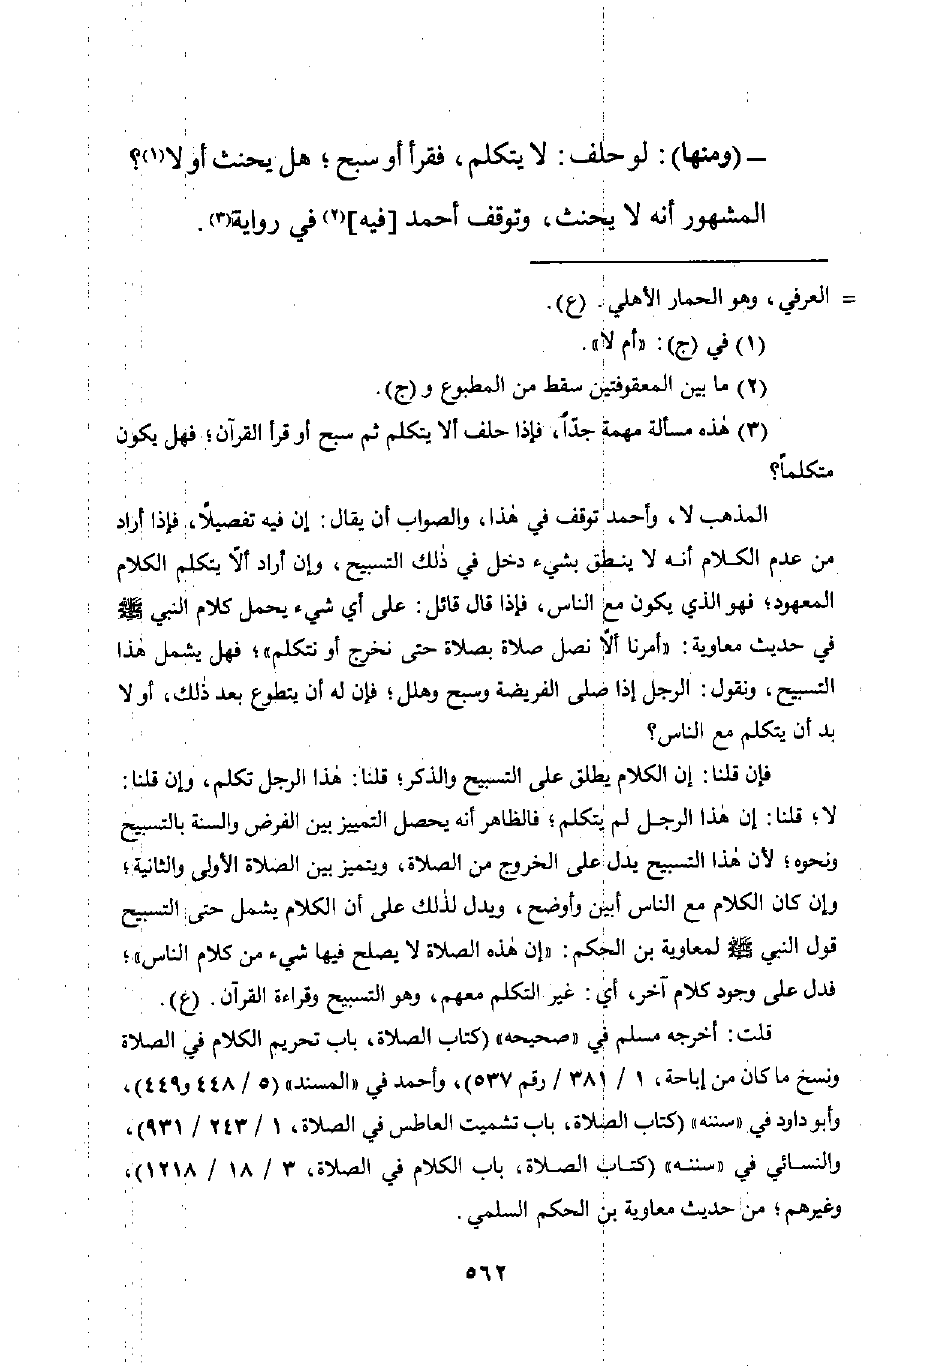 – (ومنها): لو حلف: لا يتكلم، فقرأ أو سبح؛ هل يحنث أو لا(١)؟
المشهور أنه لا يحنث، وتوقف أحمد [فيه](٢) في رواية(٣).
= العرفي، وهو الحمار الأهلي. (ع).
(١) في (ج): «أم لا».
(٢) ما بين المعقوفتين سقط من المطبوع و (ج).
(٣) هٰذه مسألة مهمة جدّاً، فإذا حلف ألا يتكلم ثم سبح أو قرأ القرآن؛ فهل يكون
متكلماً؟
المذهب لا، وأحمد توقف في هٰذا، والصواب أن يقال: إن فيه تفصيلاً، فإذا أراد
من عدم الكلام أنه لا ينطق بشيء دخل في ذٰلك التسبيح، وإن أراد ألّا يتكلم الكلام
المعهود؛ فهو الذي يكون مع الناس، فإذا قال قائل: على أي شيء يحمل كلام النبي ﷺ
في حديث معاوية: «أمرنا ألّا نصل صلاة بصلاة حتى نخرج أو نتكلم»؛ فهل يشمل هٰذا
التسبيح، ونقول: الرجل إذا صلى الفريضة وسبح وهلل؛ فإن له أن يتطوع بعد ذٰلك، أو لا
بد أن يتكلم مع الناس؟
فإن قلنا: إن الكلام يطلق على التسبيح والذكر؛ قلنا: هٰذا الرجل تكلم، وإن قلنا:
لا؛ قلنا: إن هٰذا الرجل لم يتكلم؛ فالظاهر أنه يحصل التمييز بين الفرض والسنة بالتسبيح
ونحوه؛ لأن هٰذا التسبيح يدل على الخروج من الصلاة، ويتميز بين الصلاة الأولى والثانية؛
وإن كان الكلام مع الناس أبين وأوضح، ويدل لذٰلك على أن الكلام يشمل حتى التسبيح
قول النبي ﷺ لمعاوية بن الحكم: «إن هٰذه الصلاة لا يصلح فيها شيء من كلام الناس»؛
فدل على وجود كلام آخر، أي: غير التكلم معهم، وهو التسبيح وقراءة القرآن. (ع).
قلت: أخرجه مسلم في «صحيحه» (كتاب الصلاة، باب تحريم الكلام في الصلاة
ونسخ ما كان من إباحة، ١ / ٣٨١ / رقم ٥٣٧)، وأحمد في «المسند» (٥ / ٤٤٨ و٤٤٩)،
وأبو داود في «سننه» (كتاب الصلاة، باب تشميت العاطس في الصلاة، ١ / ٢٤٣ / ٩٣١)،
والنسائي في «سننه» (كتاب الصلاة، باب الكلام في الصلاة، ٣ / ١٨ / ١٢١٨)،
وغيرهم؛ من حديث معاوية بن الحكم السلمي.
٥٦٢